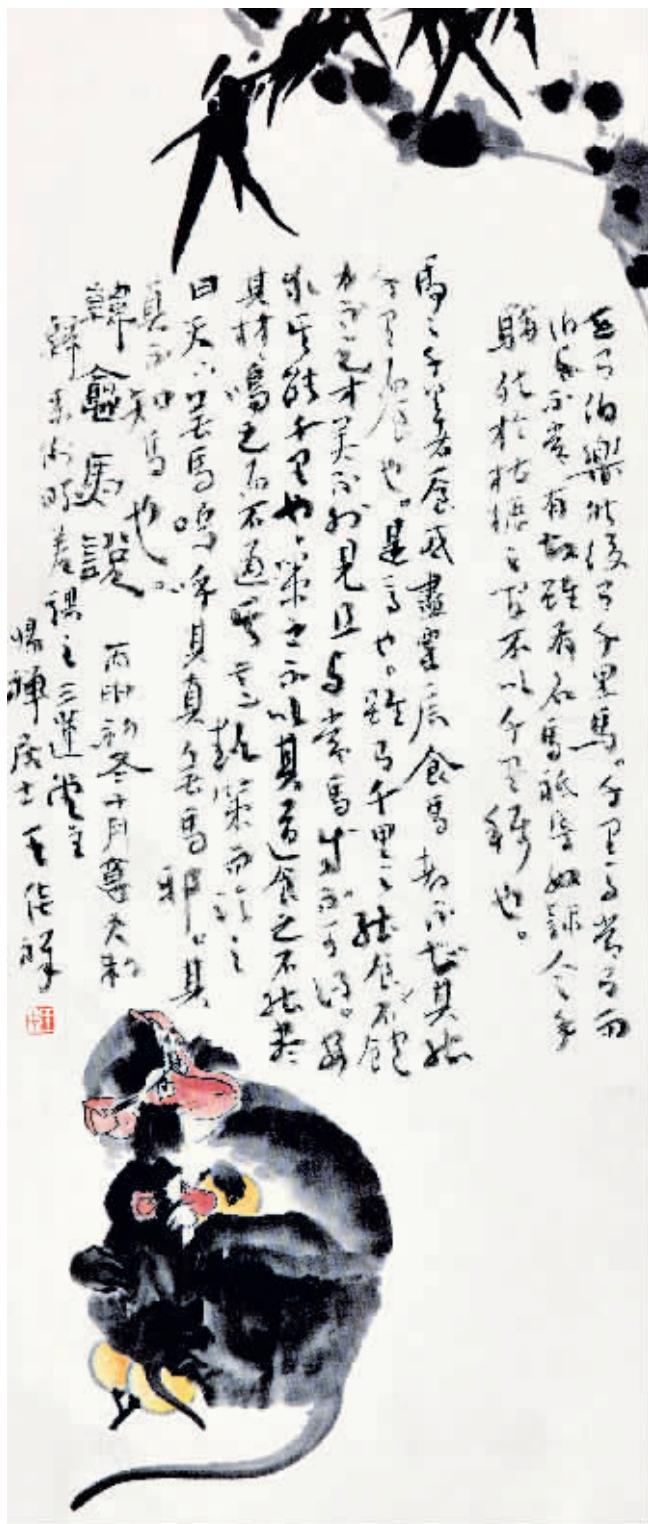 世有伯樂然後有千里馬。千里馬常有而
伯樂不常有故雖有名馬祗辱奴隸人之手
駢死於槽櫪之間不以千里稱也。
馬之千里者一食或盡粟一石食馬者不知其能
千里而食也。是馬也。雖有千里之能食不飽
力不足才美不外見且与常馬等不可得。安
求其能千里也策之不以其道食之不能盡
其材鳴之而不通其意執策而臨之
曰天下無馬。嗚呼其真無馬邪。其
真不知馬也。
韓愈馬說 丙申初冬十月
三蓮堂主
居士